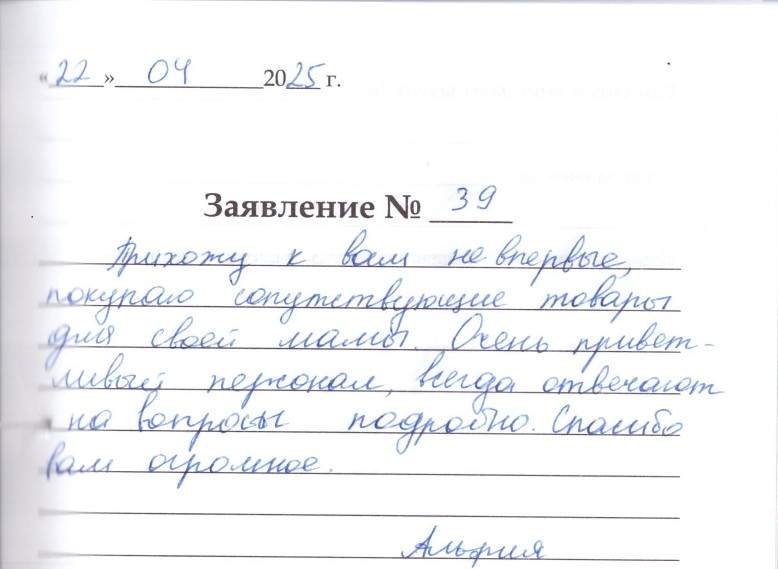 «22» 04 2025 г.
Заявление № 39
Прихожу к вам не впервые,
покупаю сопутствующие товары
для своей мамы. Очень привет-
ливый персонал, всегда отвечают
на вопросы подробно. Спасибо
вам огромное.
Альфия